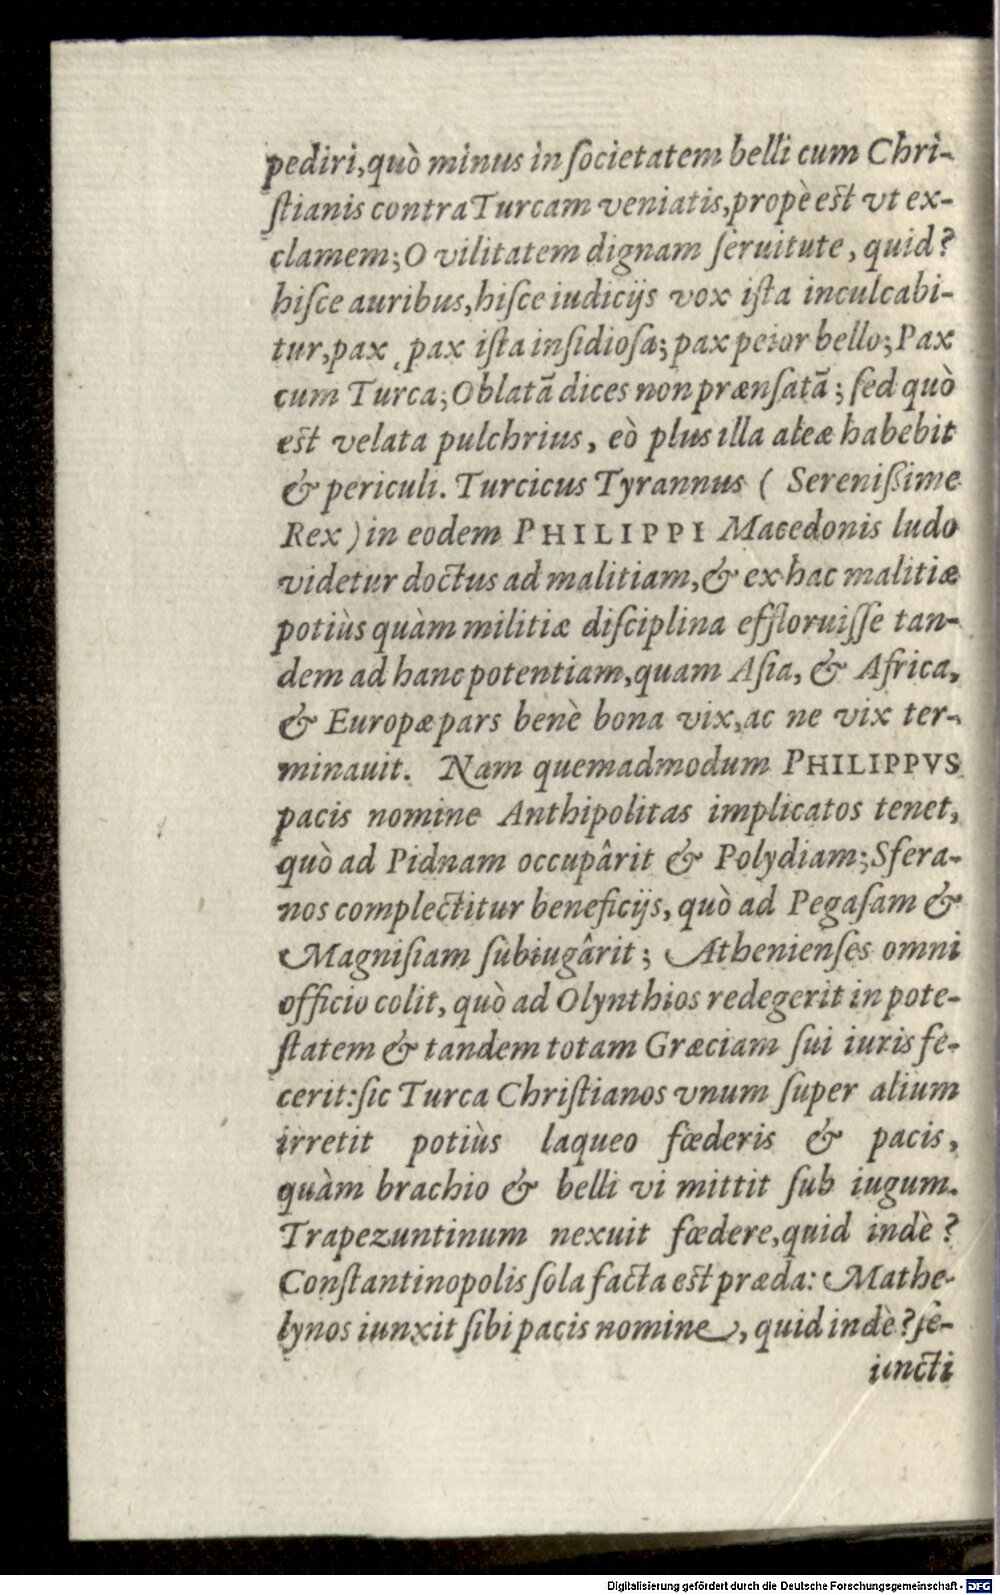 pediri, quò minus in ſocietatem belli cum Chri-
ſtianis contra Turcam veniatis, propè eſt vt ex-
clamem; O vilitatem dignam ſeruitute, quid?
hiſce auribus, hiſce iudicijs vox iſta inculcabi-
tur, pax, pax iſta inſidioſa; pax peior bello; Pax
cum Turca; Oblatā dices non prænſatā; ſed quò
eſt velata pulchrius, eò plus illa aleæ habebit
& periculi. Turcicus Tyrannus ( Sereniſsime
Rex ) in eodem PHILIPPI Macedonis ludo
videtur doctus ad malitiam, & ex hac malitiæ
potiùs quàm militiæ diſciplina effloruiſſe tan-
dem ad hanc potentiam, quam Aſia, & Africa,
& Europæ pars benè bona vix, ac ne vix ter-
minauit. Nam quemadmodum PHILIPPVS
pacis nomine Anthipolitas implicatos tenet,
quò ad Pidnam occupârit & Polydiam; Sfera-
nos complectitur beneficijs, quò ad Pegaſam &
Magniſiam ſubiugârit; Athenienſes omni
officio colit, quò ad Olynthios redegerit in pote-
ſtatem & tandem totam Græciam ſui iuris fe-
cerit: ſic Turca Chriſtianos vnum ſuper alium
irretit potiùs laqueo fœderis & pacis,
quàm brachio & belli vi mittit ſub iugum.
Trapezuntinum nexuit fœdere, quid indè?
Conſtantinopolis ſola facta eſt præda: Mathe-
lynos iunxit ſibi pacis nomine, quid indè? ſe-
iuncti
Digitalisierung gefördert durch die Deutsche Forschungsgemeinschaft - DFG